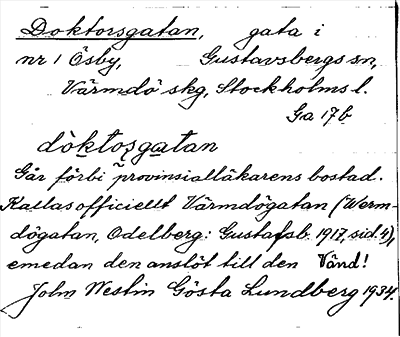 Doktorsgatan, gata i
nr 1 Ösby, Gustavsbergs sn,
Värmdö skg, Stockholms l.
Ga 17b
dòktosgatan
Går förbi provinsialläkarens bostad.
Kallas officiellt Värmdögatan (Werm-
dögatan, Odelberg: Gustafsb. 1917, sid. 4),
emedan den anslöt till den Vänd!
John Westin Gösta Lundberg 1934.